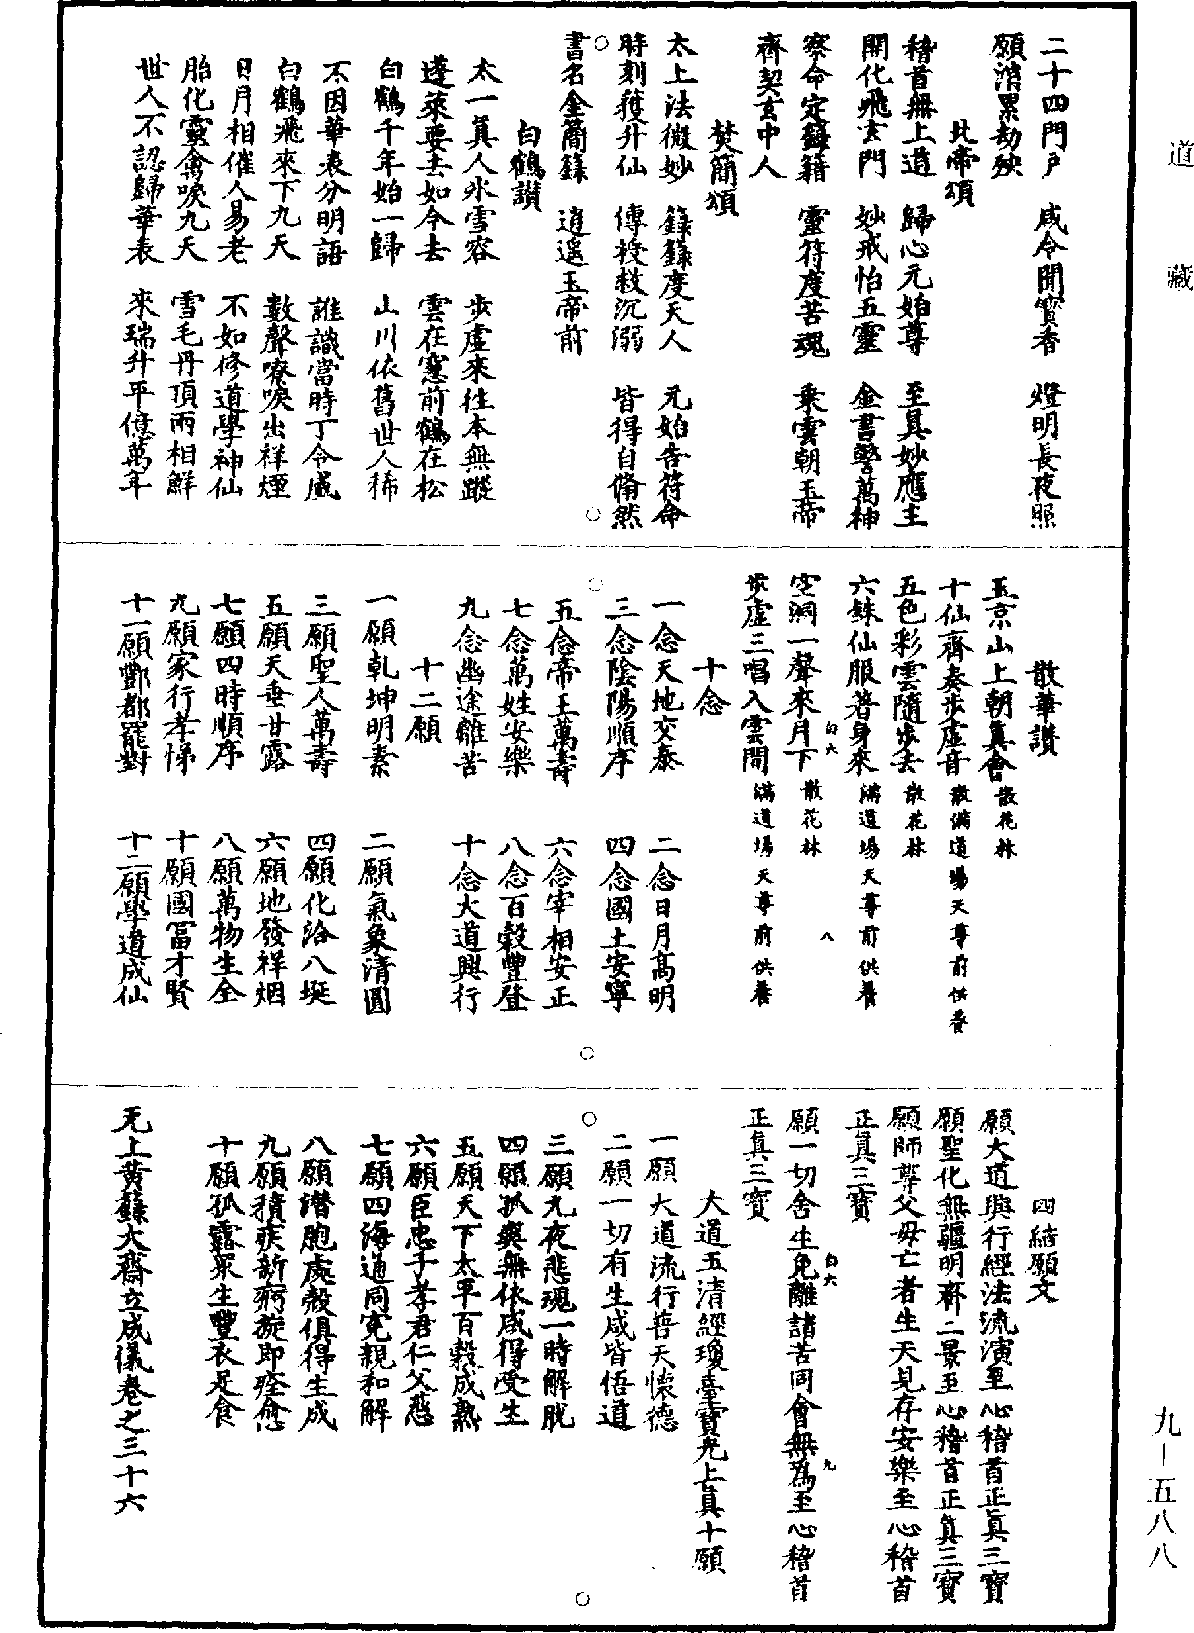 道藏
九—五八八
二十四門戶　咸令開寶香　燈明長夜照
願消累劫殃
北帝頌
稽首無上道　歸心元始尊　至真妙應主
開化飛玄門　妙戒怡五靈　金書警萬神
察命定錄籍　靈符度苦魂　乘雲朝玉帝
齊契玄中人
焚簡頌
太上法微妙　錄籙度天人　元始告符命
時刻獲升仙　傳授救沉溺　皆得自翛然
書名金簡籙　逍遙玉帝前
白鶴讃
太一真人氷雪容　步虛來往本無蹤
蓬萊要去如今去　雲在窓前鶴在松
白鶴千年始一歸　山川依舊世人稀
不因華表分明語　誰識當時丁令威
白鶴飛來下九天　數聲嘹唳出祥煙
日月相催人易老　不如修道學神仙
胎化靈禽唳九天　雪毛丹頂兩相鮮
世人不認歸華表　來瑞升平億萬年
散華讃
玉京山上朝真會散花林
十仙齊奏步虛音散滿道場天尊前供養
五色彩雲隨步去散花林
六銖仙服著身來滿道場天尊前供養
空洞一聲來月下散花林
白六　八
步虛三唱入雲間滿道場天尊前供養
十念
一念天地交泰　二念日月高明
三念陰陽順序　四念國土安寧
五念帝王萬壽　六念宰相安正
七念萬姓安樂　八念百穀豐登
九念幽途離苦　十念大道興行
十二願
一願乾坤明素　二願氣象清圓
三願聖人萬壽　四願化洽八埏
五願天垂甘露　六願地發祥烟
七願四時順序　八願萬物生全
九願家行孝悌　十願國富才賢
十一願酆都罷對　十二願學道成仙
四結願文
願大道興行經法流演至心稽首正真三寶
願聖化無疆明齊二景至心稽首正真三寶
願師尊父母亡者生天見存安樂至心稽首
正真三寶
願一切含生免離諸苦同會無為至心稽首
白六　九
正真三寶
大道五清經瓊臺寶光上真十願
一願大道流行普天懷德
二願一切有生咸皆悟道
三願九夜悲魂一時解脫
四願孤㷀無依咸得受生
五願天下太平百穀成熟
六願臣忠子孝君仁父慈
七願四海通同寃親和解
八願潛胞處殼俱得生成
九願積疾新痾旋即痊愈
十願孤露衆生豐衣足食
无上黃籙大齋立成儀卷之三十六